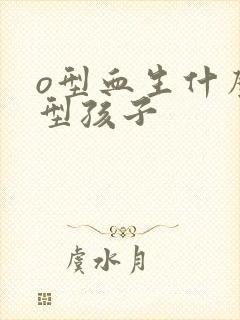 o型血生什么
型孩子
虞水月